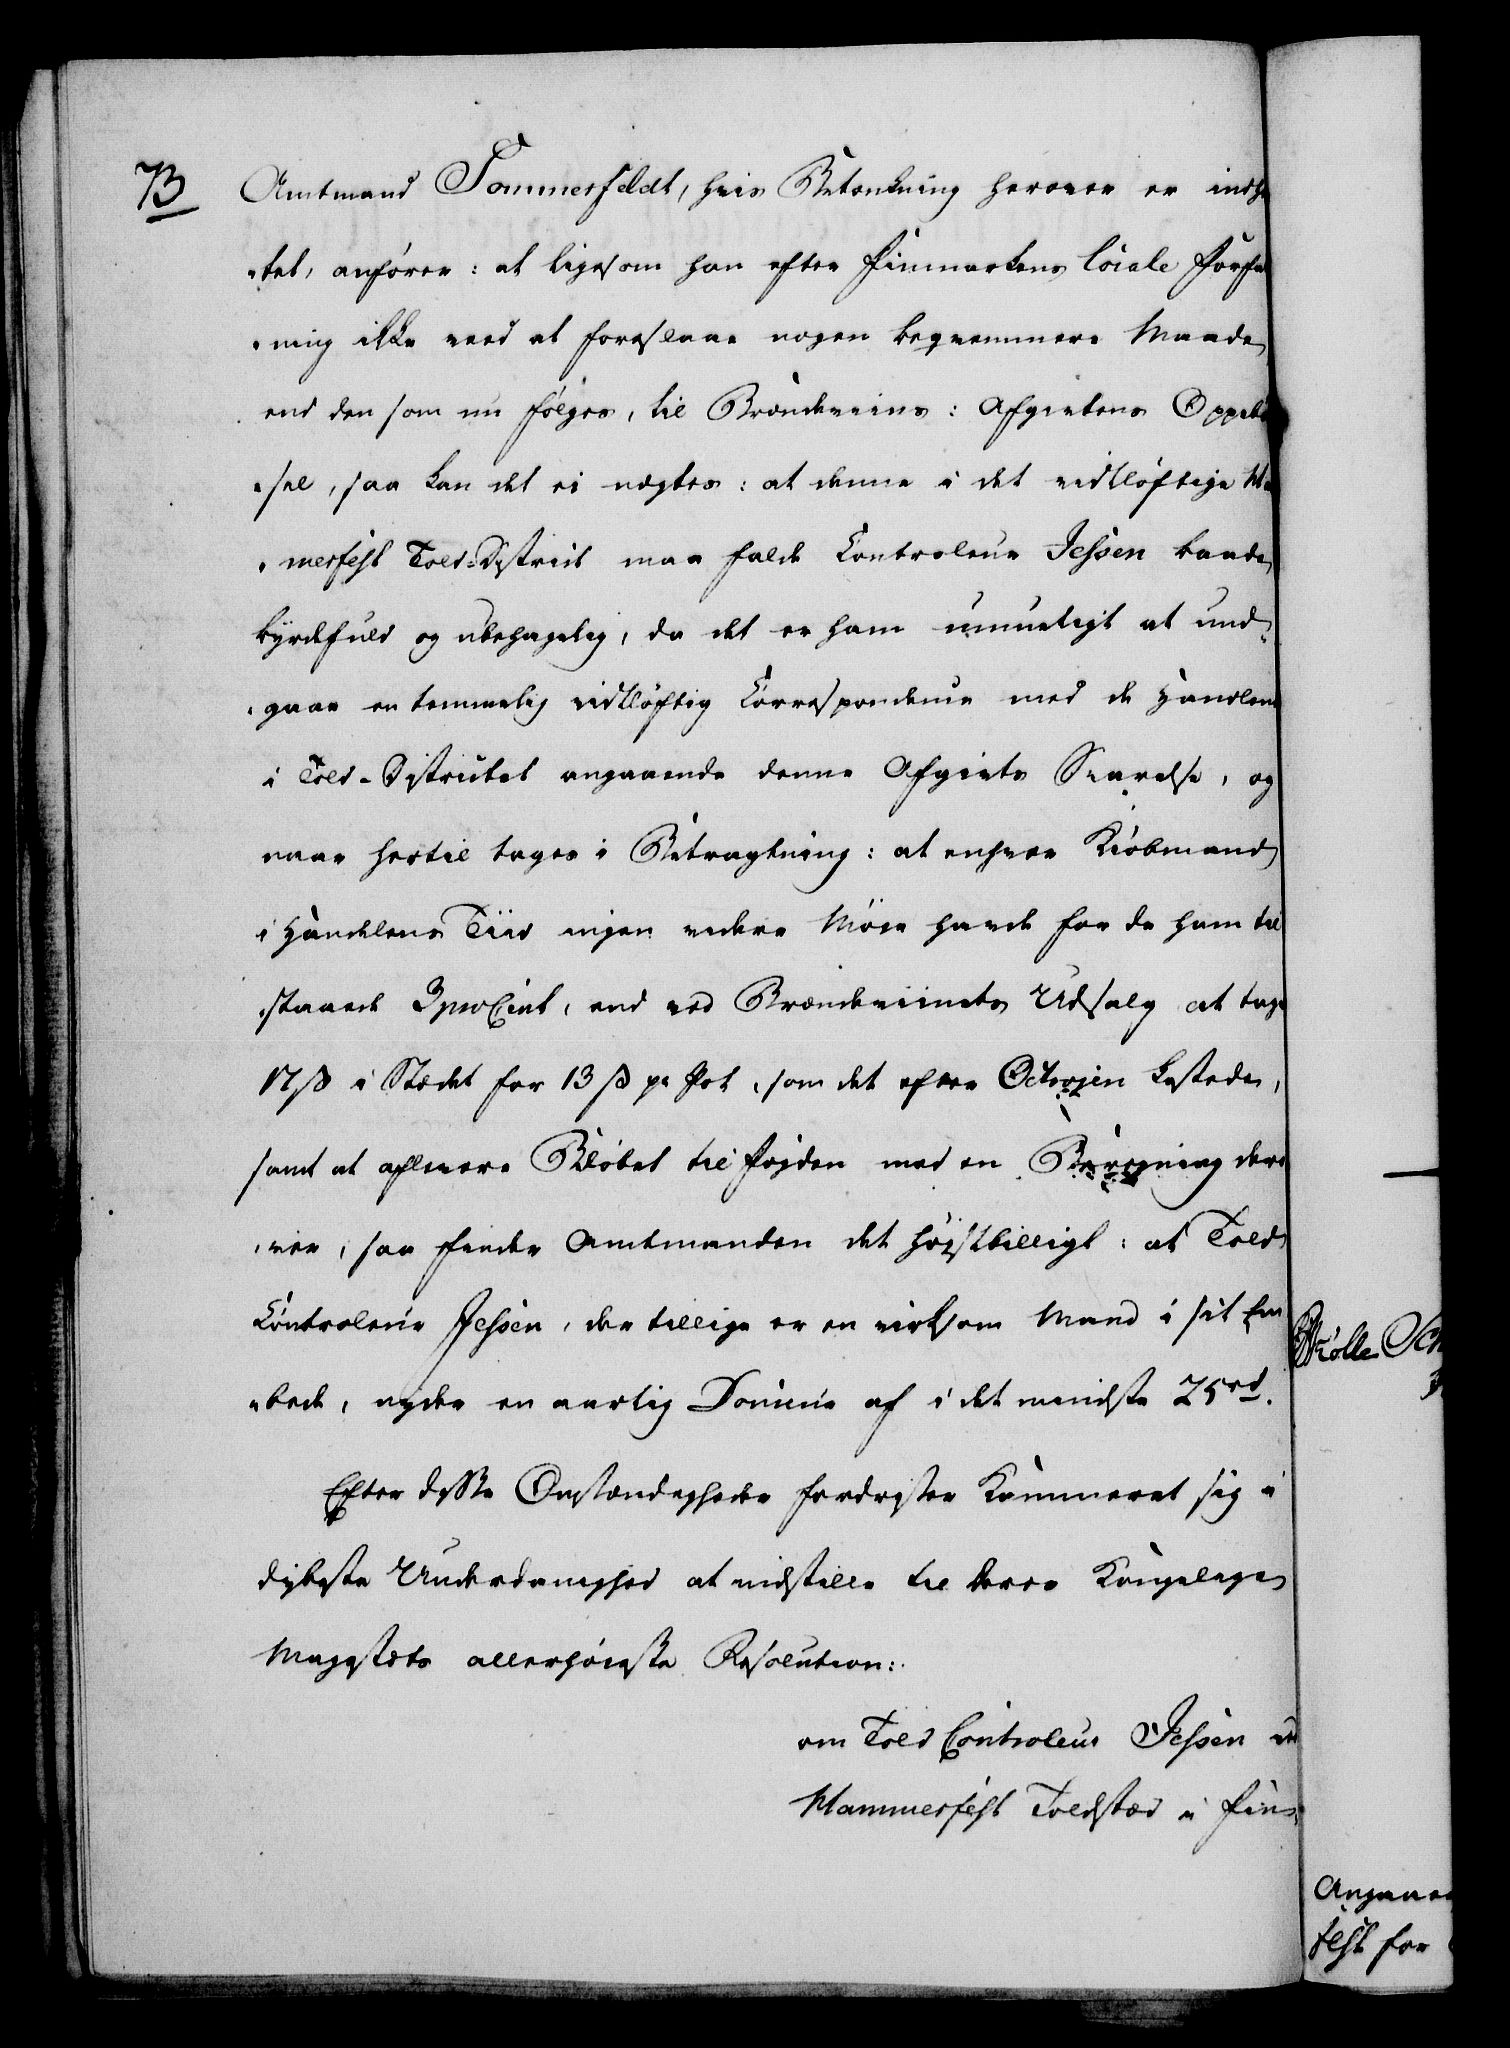 73
Amtmand Sommerfeldt, hvis Betænkning herover er indhe
tet, anförer: at ligesom han efter Finmarkens locale Forfat
ning ikke veed at foreslaae nogen beqvemmere Maade
end den som nu fölges, til Brændeviins: Afgivtens Oppebö
sel, saa kan det ei nægtes: at denne i det vidtlöftige Ha
merfest Told-District maa falde Controleur Jessen baade
byrdefuld og ubehagelig, da det er ham umueligt at und
gaae en temmelig vidtlöftig Correspondence med de Handlende
i Told-Districtet angaaende denne Afgivts Svarelse, og
naar hertil tages i Betragtning: at enhver Kiöbmand
i Handelens Tiid ingen videre Möie havde for de ham til
staaede 3 pro Cent, end ved Brændeviinets Udsalg at tage
17 ß i Stædet for 13 ß pr Pot, som det efter Octrojen kostede,
samt at aflevere Belöbet til Fogden med en Beregning der
ver, saa finder Amtmanden det höistbilligt: at Told
Controleur Jessen, der tillige er en virksom Mand i sit Em
bede, nyder en aarlig Douceur af i det mindste 25 rd.
Efter disse Omstændigheder fordrister Kammeret sig i
dybeste Underdanighed at indstille til Deres Kongelige
Majestæts allerhöieste Resolution:
om Told Controleur Jessen ved
Hammerfest Toldsted i Fin-
Angaaen
fest for